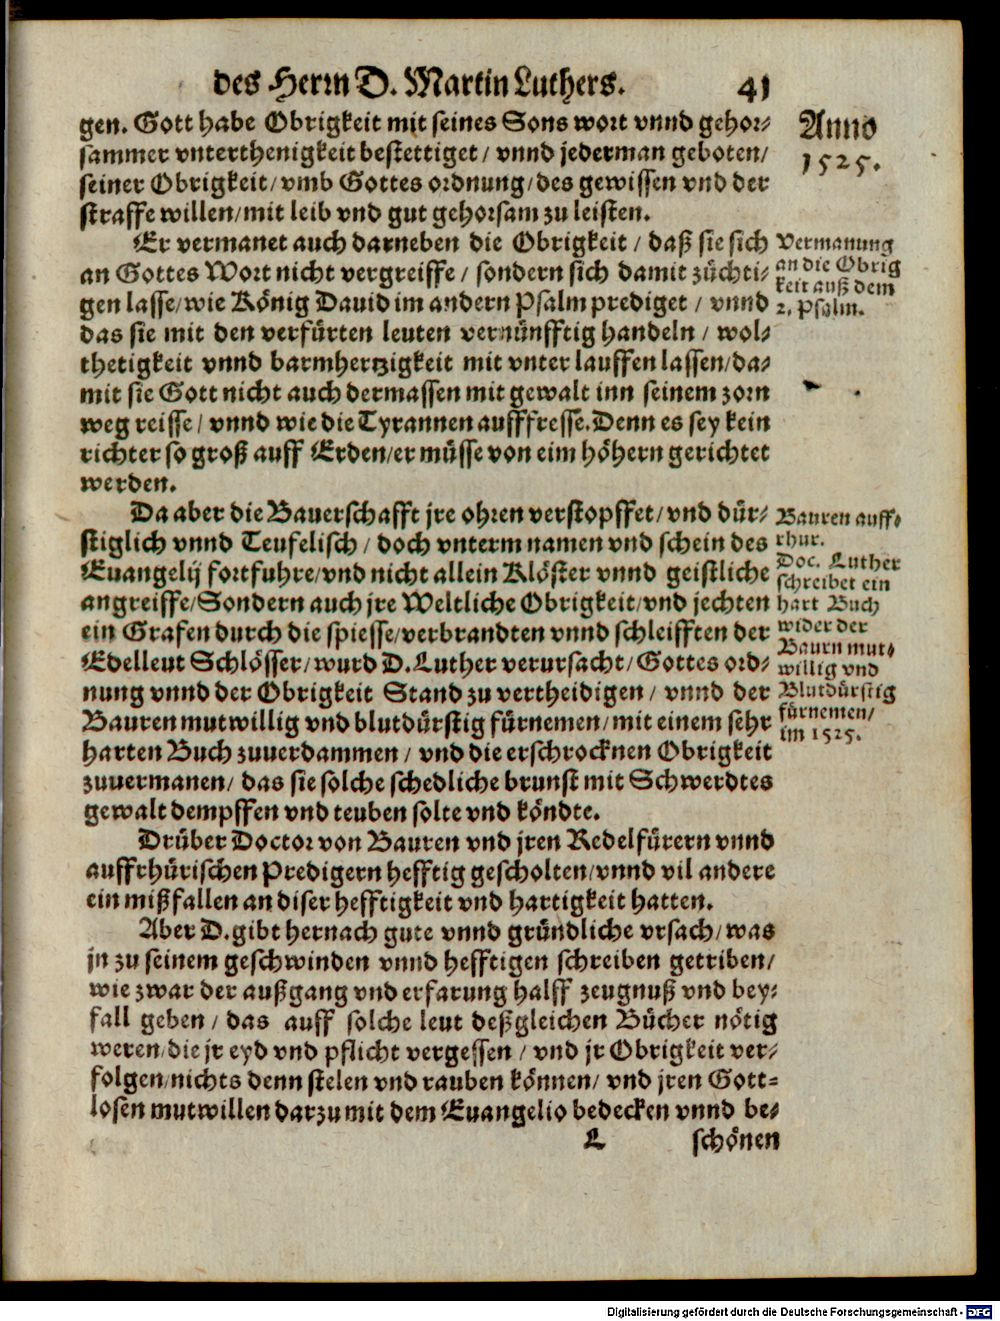 des Herrn D. Martin Luthers. 41
gen. Gott habe Obrigkeit mit seines Sons wort vnnd gehor⸗
sammer vnterthenigkeit bestettiget / vnnd jederman geboten /
seiner Obrigkeit / vmb Gottes ordnung / des gewissen vnd der
straffe willen / mit leib vnd gut gehorsam zu leisten.
Er vermanet auch darneben die Obrigkeit / daß sie sich
an Gottes Wort nicht vergreiffe / sondern sich damit züchti⸗
gen lasse / wie König Dauid im andern Psalm prediget / vnnd
das sie mit den verfürten leuten vernünfftig handeln / wol⸗
thetigkeit vnnd barmhertzigkeit mit vnter lauffen lassen / da⸗
mit sie Gott nicht auch dermassen mit gewalt inn seinem zorn
weg reisse / vnnd wie die Tyrannen aufffresse. Denn es sey kein
richter so groß auff Erden / er müsse von eim höhern gerichtet
werden.
Da aber die Bauerschafft jre ohren verstopffet / vnd dür⸗
stiglich vnnd Teufelisch / doch vnterm namen vnd schein des
Euangelij fortfuhre / vnd nicht allein Klöster vnnd geistliche
angreiffe / Sondern auch jre Weltliche Obrigkeit / vnd jechten
ein Grafen durch die spiesse / verbrandten vnnd schleifften der
Edelleut Schlösser / wurd D. Luther verursacht / Gottes ord⸗
nung vnnd der Obrigkeit Stand zu vertheidigen / vnnd der
Bauren mutwillig vnd blutdürstig fürnemen / mit einem sehr
harten Buch zuuerdammen / vnd die erschrocknen Obrigkeit
zuuermanen / das sie solche schedliche brunst mit Schwerdtes
gewalt dempffen vnd teuben solte vnd köndte.
Drüber Doctor von Bauren vnd jren Redelfürern vnnd
auffrhürischen Predigern hefftig gescholten / vnnd vil andere
ein mißfallen an diser hefftigkeit vnd hartigkeit hatten.
Aber D. gibt hernach gute vnnd gründliche vrsach / was
jn zu seinem geschwinden vnnd hefftigen schreiben getriben /
wie zwar der außgang vnd erfarung halff zeugnuß vnd bey⸗
fall geben / das auff solche leut deßgleichen Bücher nötig
weren / die jr eyd vnd pflicht vergessen / vnd jr Obrigkeit ver⸗
folgen / nichts denn stelen vnd rauben können / vnd jren Gott⸗
losen mutwillen darzu mit dem Euangelio bedecken vnnd be⸗
L schönen
Anno
1525.
Vermanung
an die Obrig
keit auß dem
2. Psalm.
Bauren auff⸗
rhur.
Doc. Luther
schreibet ein
hart Buch
wider der
Baurn mut⸗
willig vnd
Blutdürstig
fürnemen /
im 1525.
Digitalisierung gefördert durch die Deutsche Forschungsgemeinschaft - DFG